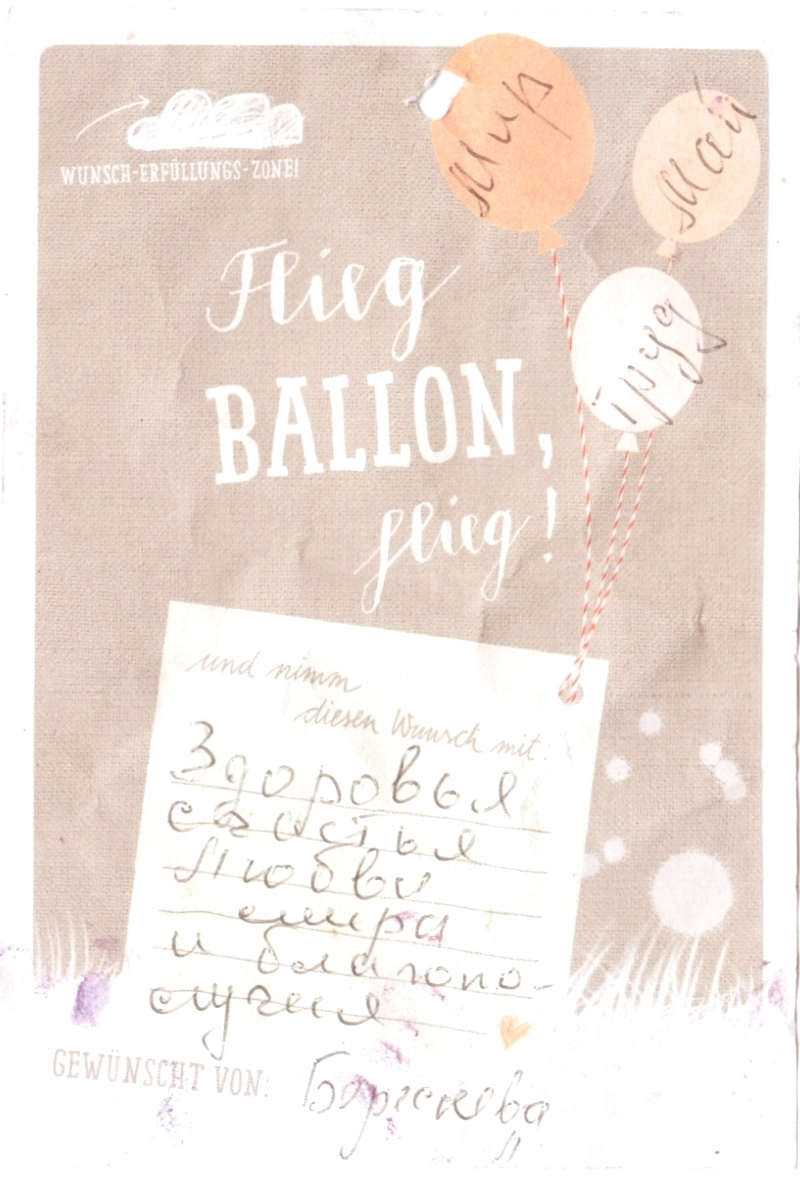 WUNSCH-ERFÜLLUNGS-ZONE!
мир
Май
труд
Flieg
BALLON,
flieg!
und nimm
diesen Wunsch mit:
Здоровья
счастья
Любви
мира
и благопо-
лучия
GEWÜNSCHT VON: